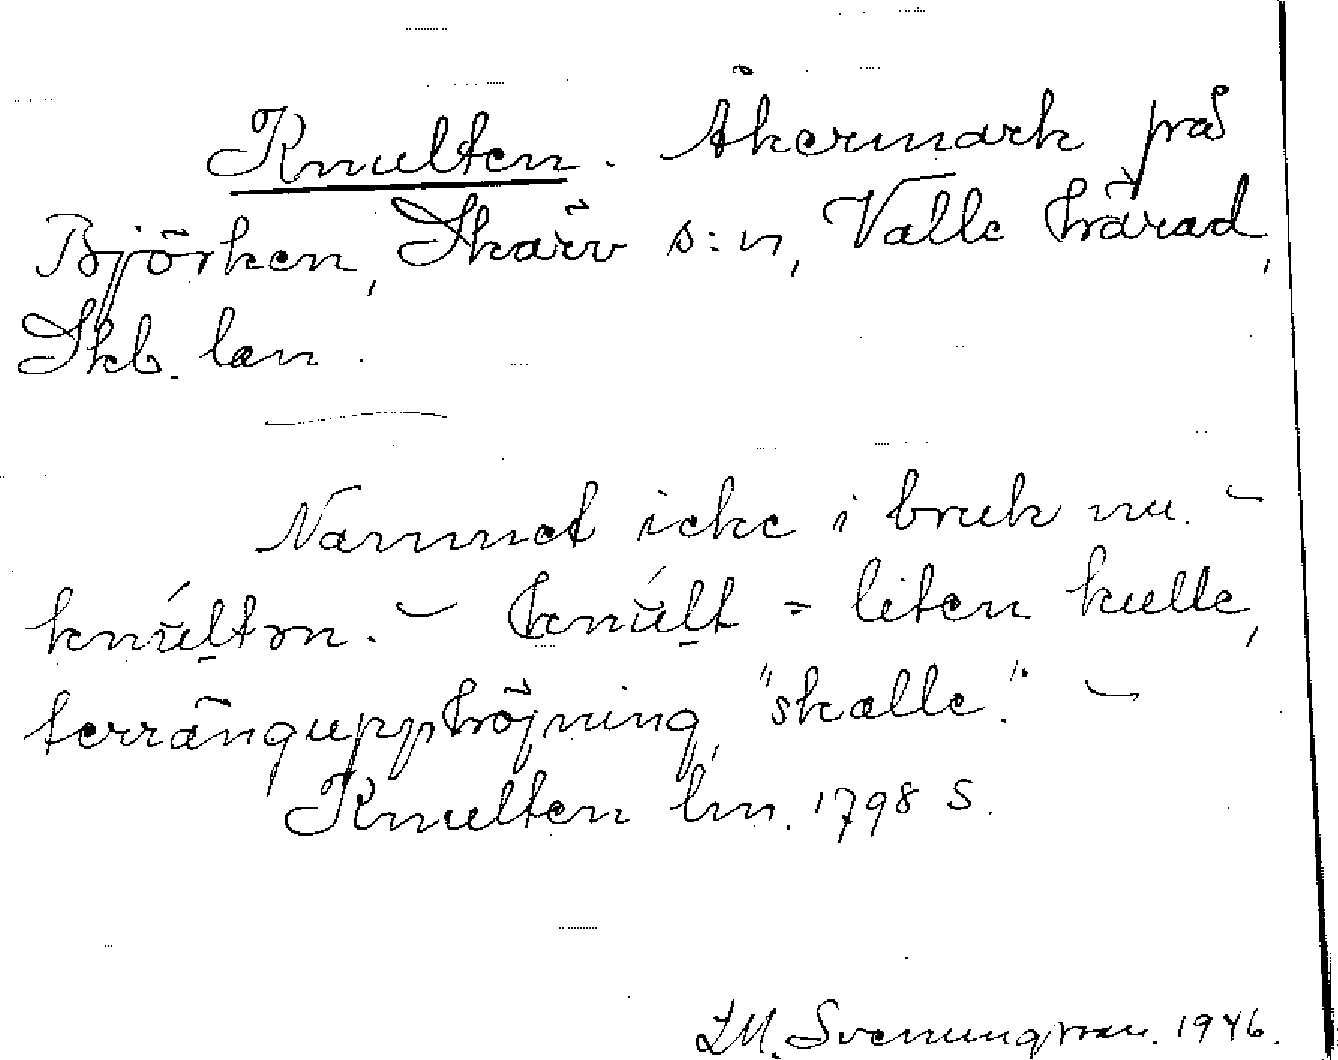 Knulten. Åkermark på
Björken, Skärv s:n, Valle härad,
Skb. län.
Namnet icke i bruk nu. –
knúltn. – knúlt = liten kulle,
terrängupphöjning, "skalle". –
Knulten lm. 1798 S.
Svenungsson. 1946.